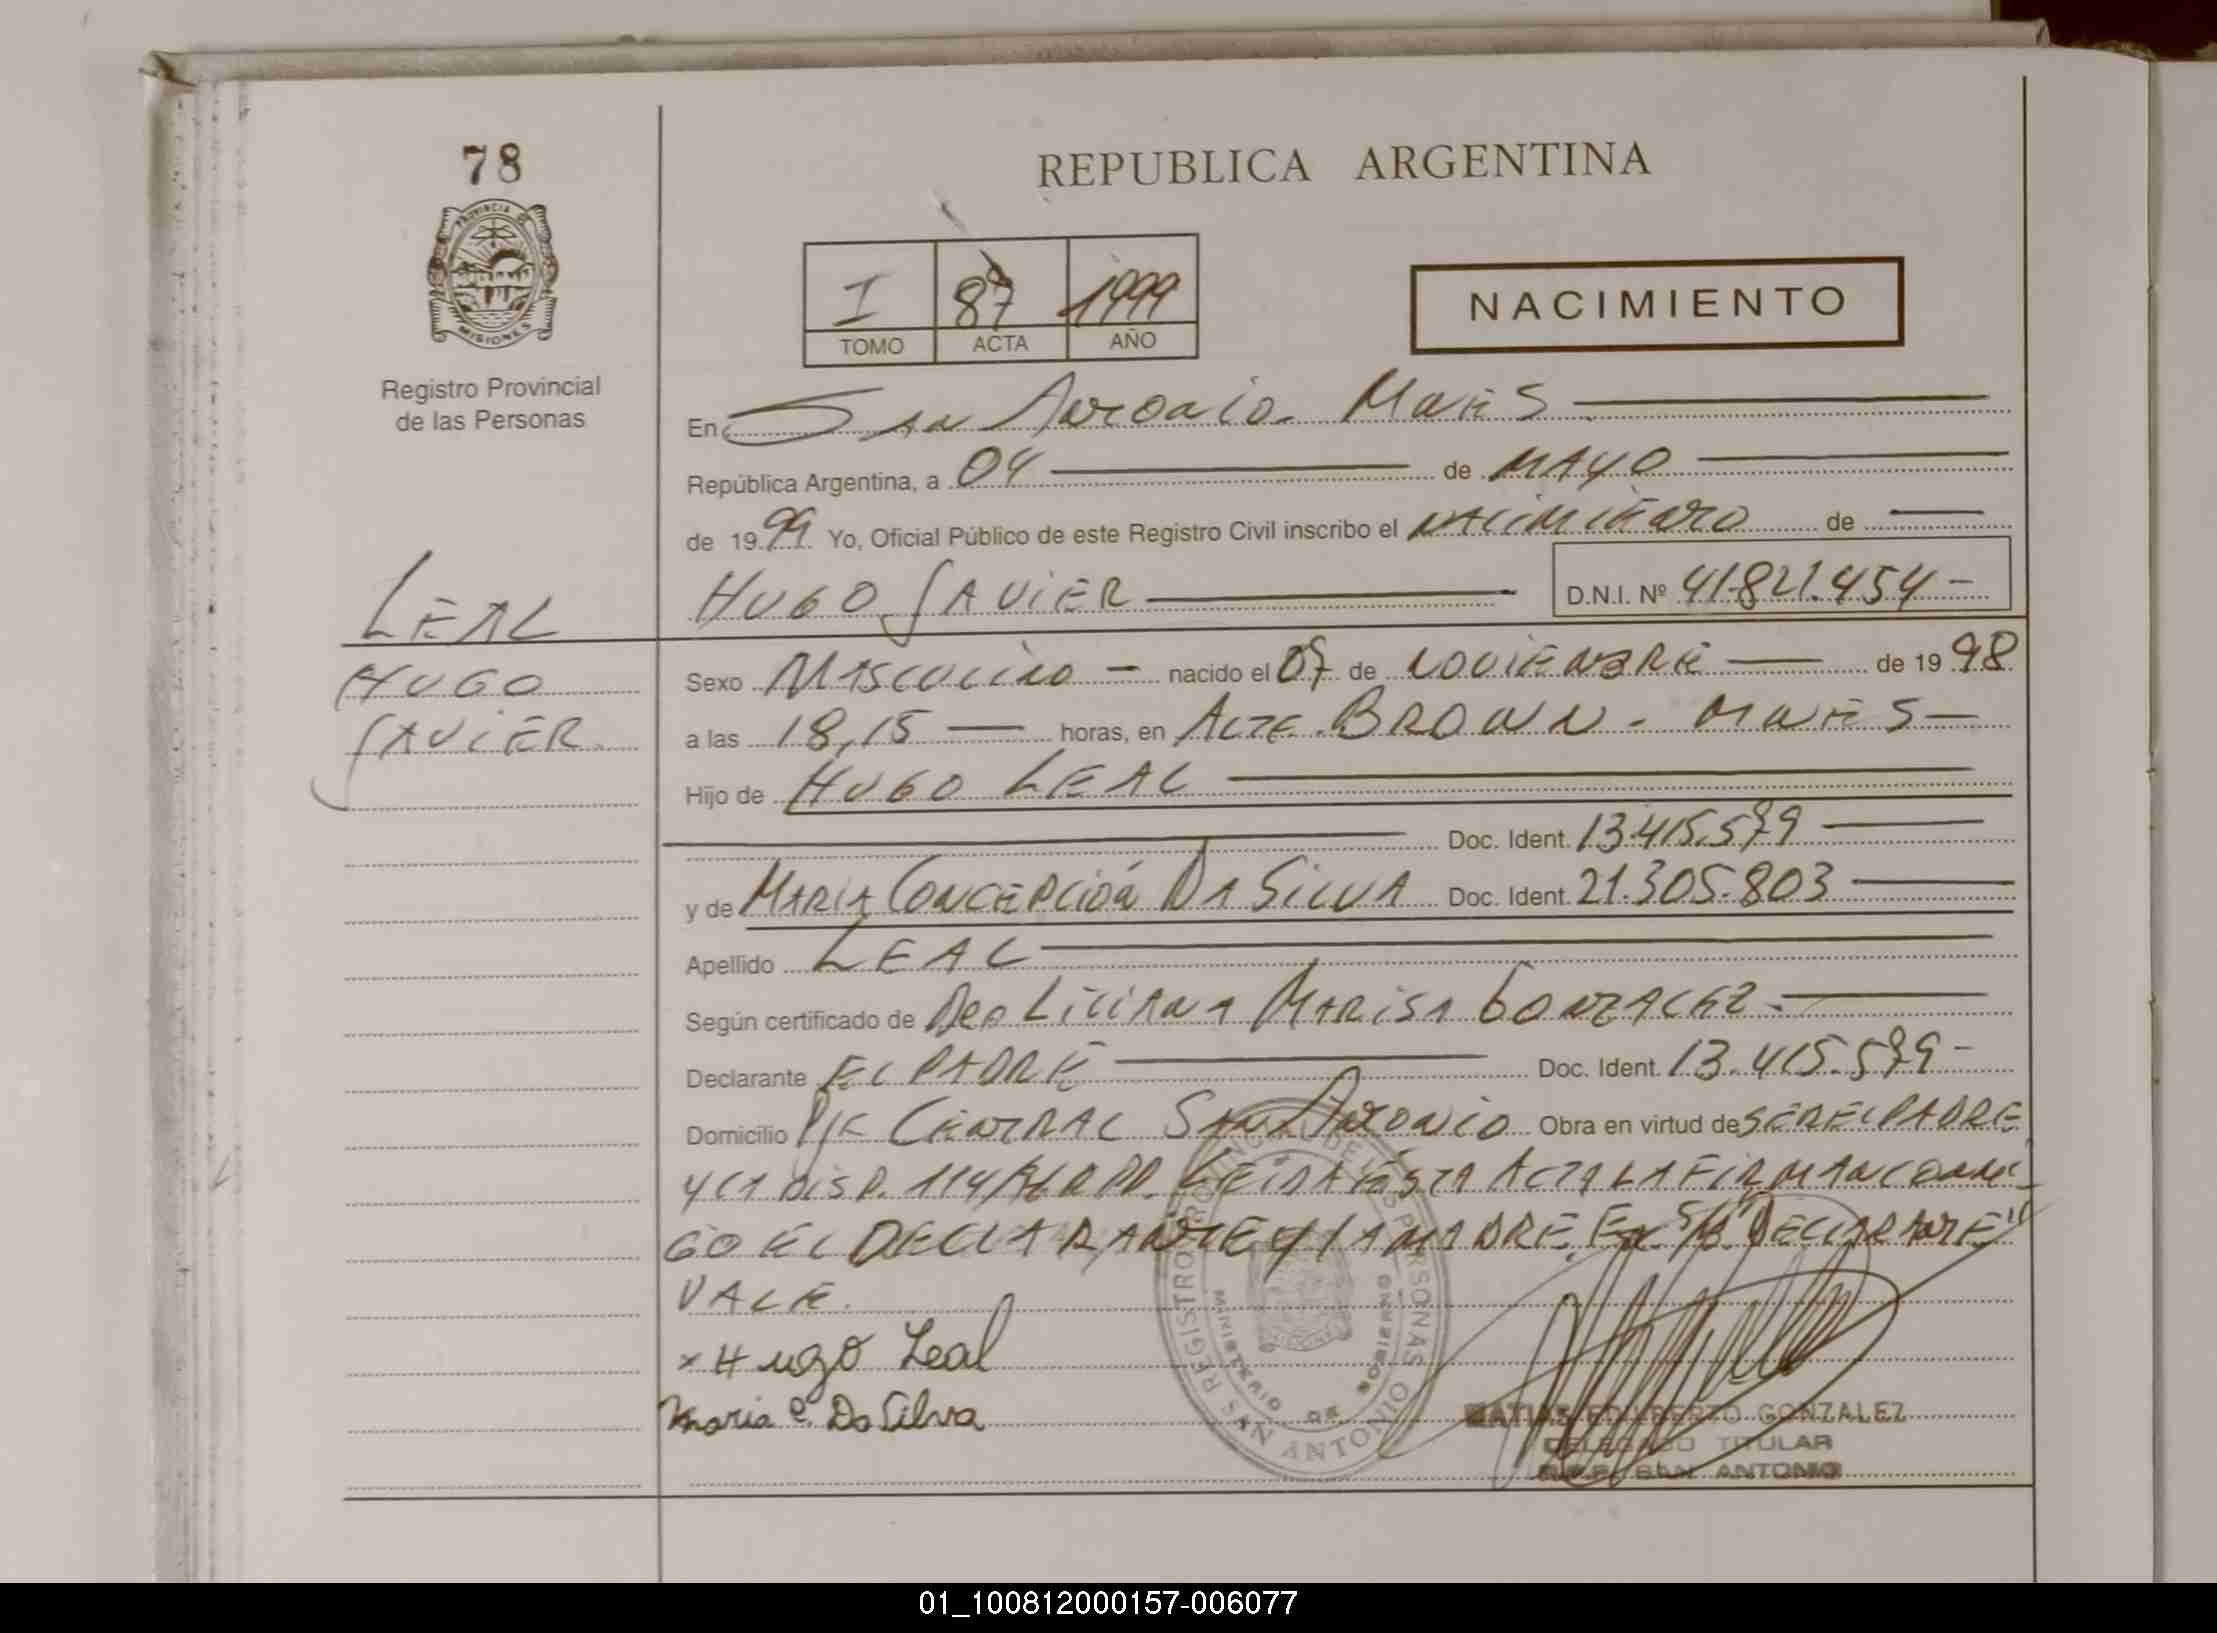 78
REPUBLICA ARGENTINA
PROVINCIA DE
MISIONES
Registro Provincial
de las Personas
I 87 1999
TOMO ACTA AÑO
NACIMIENTO
En San Antonio. Mnes
República Argentina, a 04 de MAYO
de 1999 Yo, Oficial Público de este Registro Civil inscribo el NACIMIENTO de
HUGO JAVIER D.N.I. Nº 41.821.454-
LEAL
HUGO
JAVIER
Sexo MASCULINO nacido el 07 de NOVIEMBRE de 1998
a las 18,15 horas, en ALTE. BROWN. MNES
Hijo de HUGO LEAL
Doc. Ident. 13.415.579
y de MARIA CONCEPCIÓN DA SILVA Doc. Ident. 21.305.803
Apellido LEAL
Según certificado de LILIANA MARISA GONZALEZ.
Declarante EL PADRE Doc. Ident. 13.415.579-
Domicilio PJE CENTRAL SAN ANTONIO Obra en virtud de SER EL PADRE
Y LA DISP. 114 LEIDA ESTA ACTA LA FIRMAN CONMI-
GO EL DECLARANTE Y LA MADRE. EN S/R "DECLARANTE"
VALE.
x Hugo Leal
Maria C. Da Silva
REGISTRO PROVINCIAL DE LAS PERSONAS
MINISTERIO DE GOBIERNO
SAN ANTONIO
GONZALEZ
DELEGADO TITULAR
R.P.P. SAN ANTONIO
01_100812000157-006077